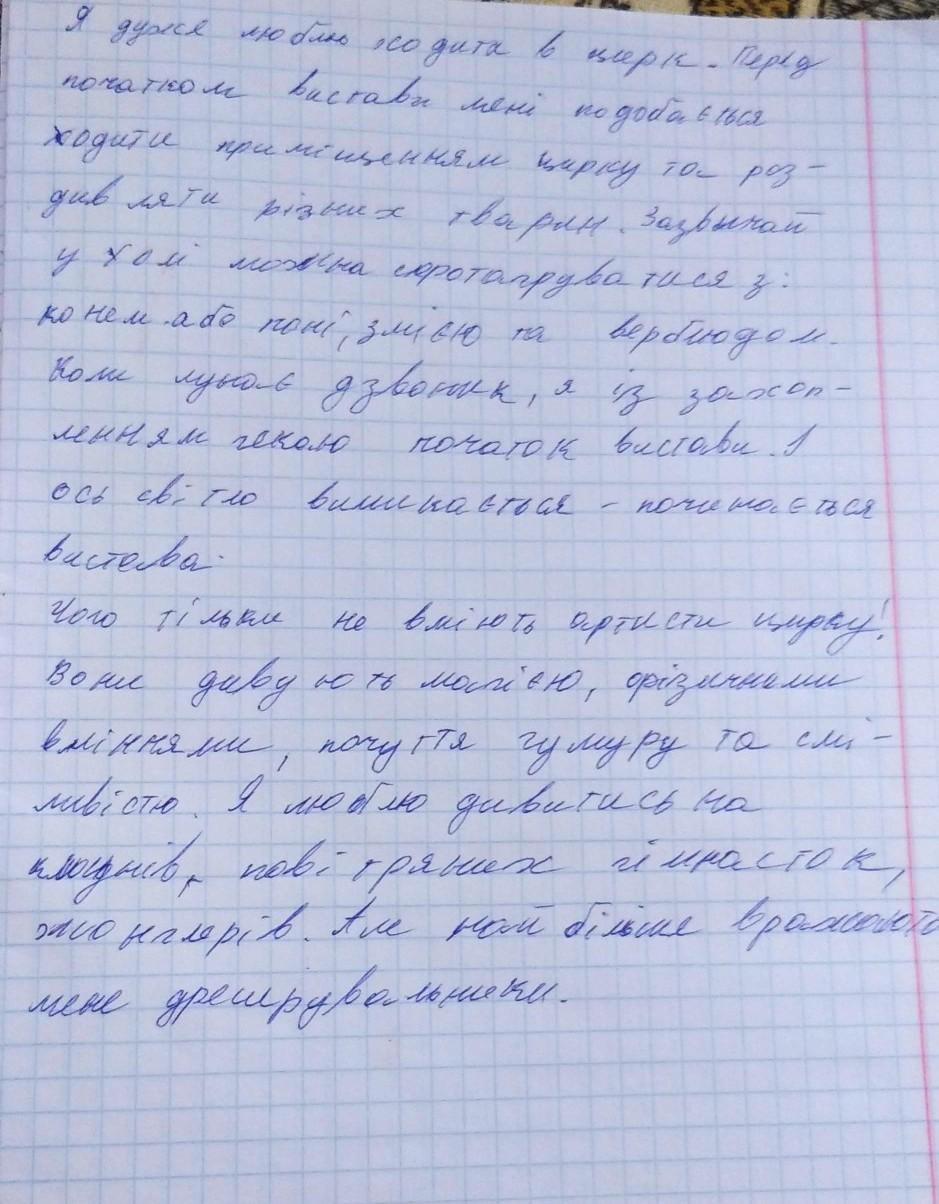 Я дуже люблю ходити в цирк. Перед
початком вистави мені подобається
ходити приміщенням цирку та роз-
дивляти різних тварин. Зазвичай
у холі можна сфотографуватися з:
конем або поні, змією та верблюдом.
Коли лунає дзвоник, я із захоп-
ленням чекаю початок вистави. І
ось світло вимикається - починається
вистава.
Чого тільки не вміють артисти цирку!
Вони дивують магією, фізичними
вміннями, почуття гумуру та смі-
ливістю. Я люблю дивитись на
клоунів, повітряних гімнасток,
жонглерів. Але най більше вражають
мене дресирувальники.